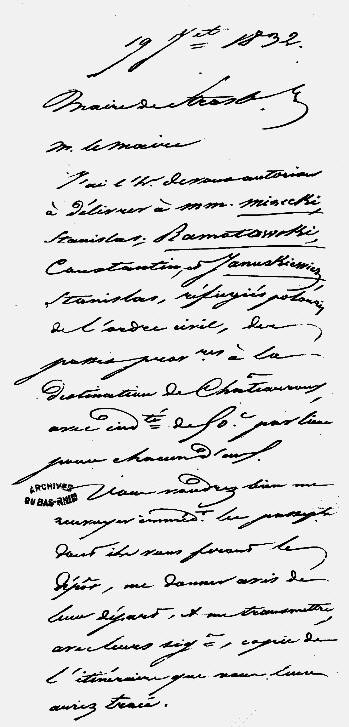 19 Jet 1832.
Maire de Strasb.
M. le Maire
J'ai l'h. de vous autoriser
à délivrer à MM. Miniecki,
Stanislas, Ramotowski,
Constantin, et Januskiewicz
Stanislas, réfugiés polonais
de l'ordre civil, des
passes provres à la
destination de Chateauroux,
avec indté de 50c par lieue
pour chacun d'eux.
ARCHIVES
DU BAS-RHIN
Vous voudrez bien me
renvoyer imméd.t les passeps
dont ils vous feront le
dépôt, me donner avis de
leur départ, et me transmettre,
avec leurs sig.ts, copie de
l'itinéraire que vous leur
aurez tracé.